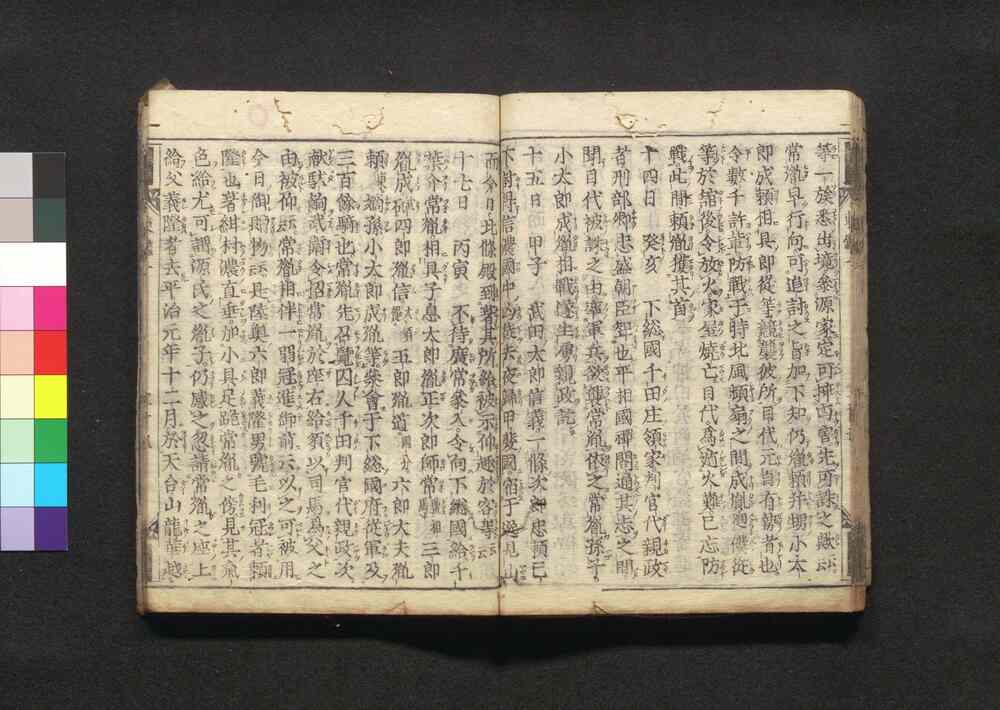 等一族悉出境參源家定可挿両當先可誅之歟云云
常胤早行向可追討之旨加下知仍胤頼并甥小太
郎成頼相具郎從等競襲彼所目代元自有勢者也
令數千許輩防戰于時北風頻扇之間成胤廻僕從
等於舘後令放火家屋燒亡目代為遁火難已忘防
戰此間頼胤獲其首
十四日 癸亥 下総國千田庄領家判官代親政
者刑部卿忠盛朝臣聟也平相國禪閤通其志之間
聞目代被誅之由率軍兵欲襲常胤依之常胤孫子
小太郎成胤相戰遂生虜親政訖
十五日 甲子 武田太郎信義一條次郎忠頼已
下討得信濃國中凶徒去夜歸甲斐國宿于逸見山
而今日北條殿到着其所給被示仰趣於客等云云
十七日 丙寅 不待廣常參入令向下総國給千
葉介常胤相具子息太郎胤正次郎師常三郎
胤成武石四郎胤信大須賀五郎胤道國分六郎大夫胤
頼東嫡孫小太郎成胤等參會于下総國府從軍及
三百餘騎也常胤先召覽囚人千田判官代親政次
献駄餉武衛令招常胤於座右給須以司馬為父之
由被仰云云常胤相伴一弱冠進御前云以之可被用
今日御贈物云云是陸奥六郎義隆男號毛利冠者頼
隆也著紺村濃直垂加小具足跪常胤之傍見其氣
色給尤可謂源氏之胤子仍感之忽請常胤之座上
給父義隆者去平治元年十二月於天台山龍華越